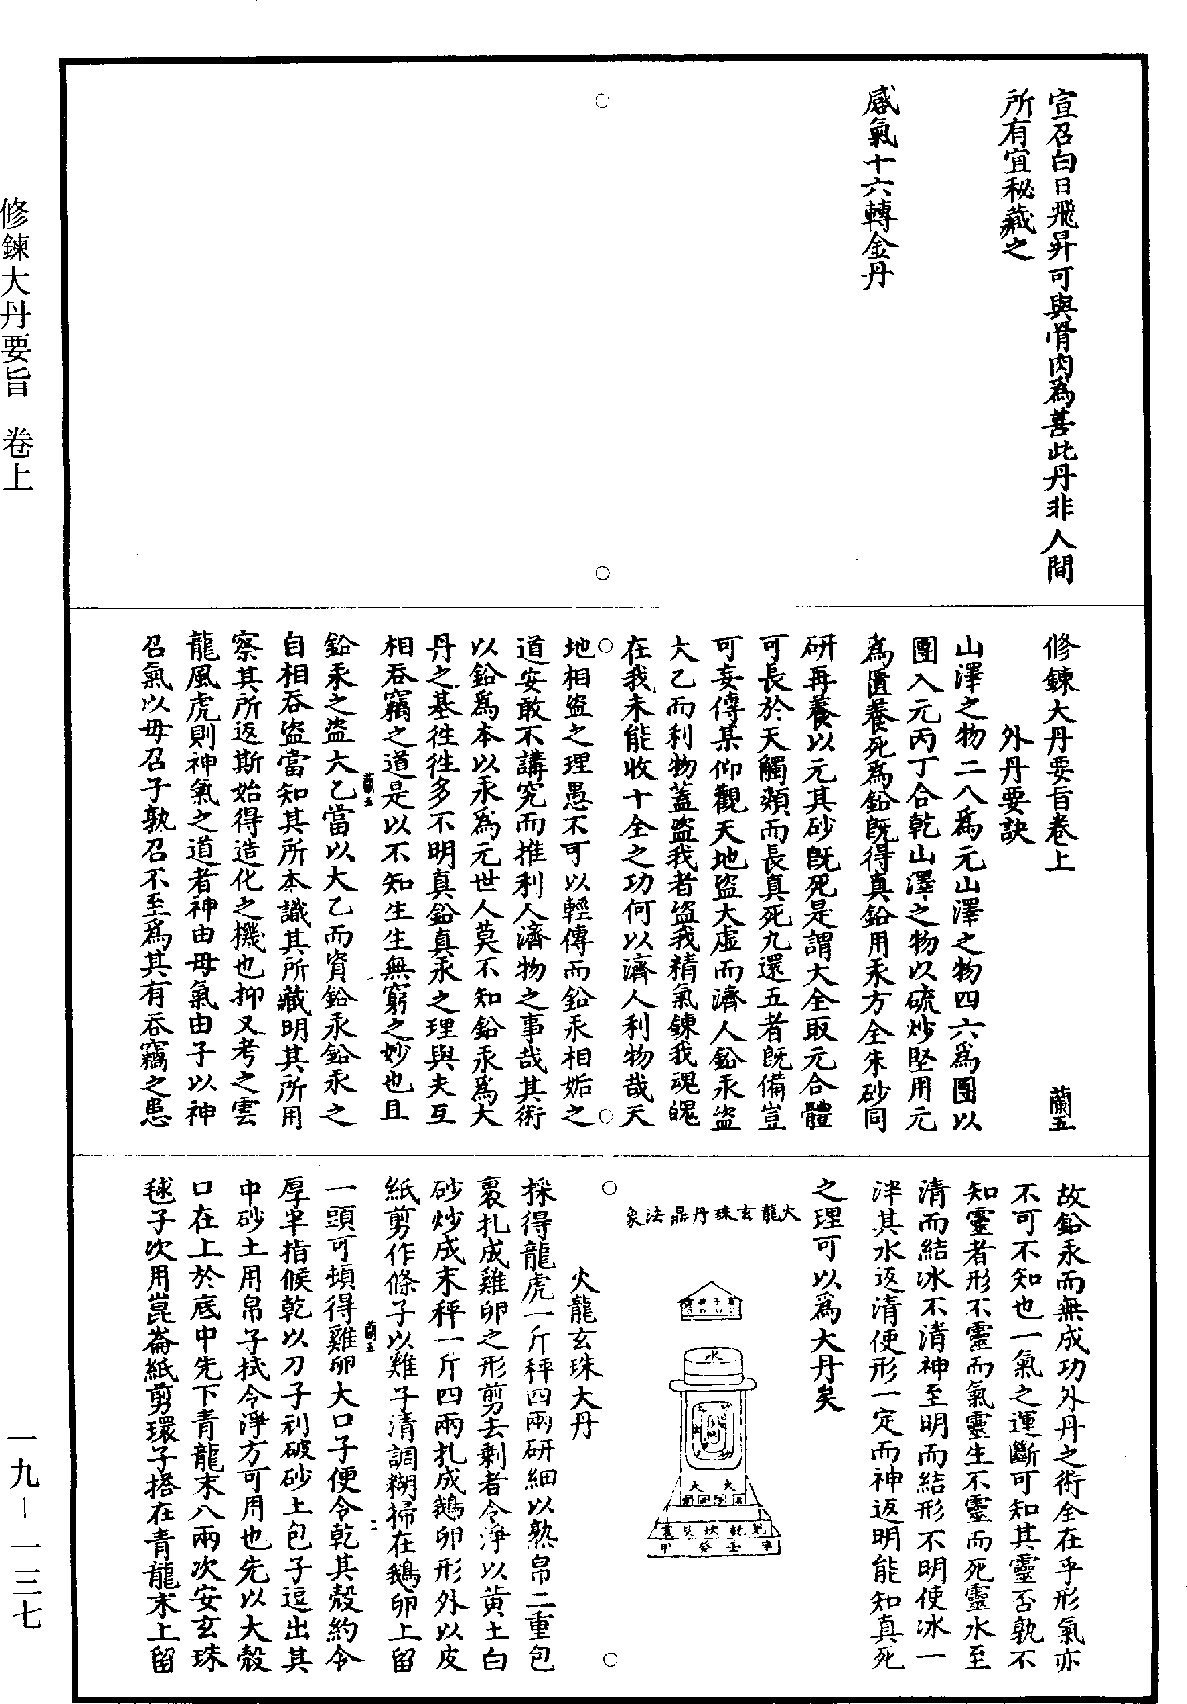 宣召白日飛昇可與骨肉為善此丹非人間
所有宜秘藏之
感氣十六轉金丹
修鍊大丹要旨卷上
蘭五
外丹要訣
山澤之物二八為元山澤之物四六為團以
團入元丙丁合乾山澤之物以硫炒堅用元
為匱養死為鉛既得真鉛用汞方全朱砂同
研再養以元其砂既死是謂大全取元合體
可長於天觸類而長真死九還五者既備豈
可妄傳某仰觀天地盜大虛而濟人鉛汞盜
大乙而利物蓋盜我者盜我精氣鍊我魂魄
在我未能收十全之功何以濟人利物哉天
地相盜之理愚不可以輕傳而鉛汞相姤之
道安敢不講究而推利人濟物之事哉其術
以鉛為本以汞為元世人莫不知鉛汞為大
丹之基徃徃多不明真鉛真汞之理與夫互
相吞竊之道是以不知生生無窮之妙也且
蘭五
鉛汞之盜大乙當以大乙而資鉛汞鉛汞之
自相吞盜當知其所本識其所藏明其所用
察其所返斯始得造化之機也抑又考之雲
龍風虎則神氣之道者神由母氣由子以神
召氣以母召子孰召不至為其有吞竊之患
故鉛汞而無成功外丹之術全在乎形氣亦
不可不知也一氣之運斷可知其靈否孰不
知靈者形不靈而氣靈生不靈而死靈水至
清而結冰不清神至明而結形不明使冰一
泮其水返清使形一定而神返明能知真死
之理可以為大丹矣
火龍玄珠丹鼎法象
水
火龍玄珠大丹
採得龍虎一斤秤四兩研細以熟帛二重包
裹扎成雞卵之形剪去剩者令淨以黃土白
砂炒成末秤一斤四兩扎成鵝卵形外以皮
紙剪作條子以雞子清調糊掃在鵝卵上留
蘭五
二
一頭可頓得雞卵大口子便令乾其殼約令
厚半指候乾以刀子利破砂土包子逗出其
中砂土用帛子拭令淨方可用也先以大殼
口在上於底中先下青龍末八兩次安玄珠
毬子次用崑崙紙剪環子搭在青龍末上留
修鍊大丹要旨 卷上
一九－一三七